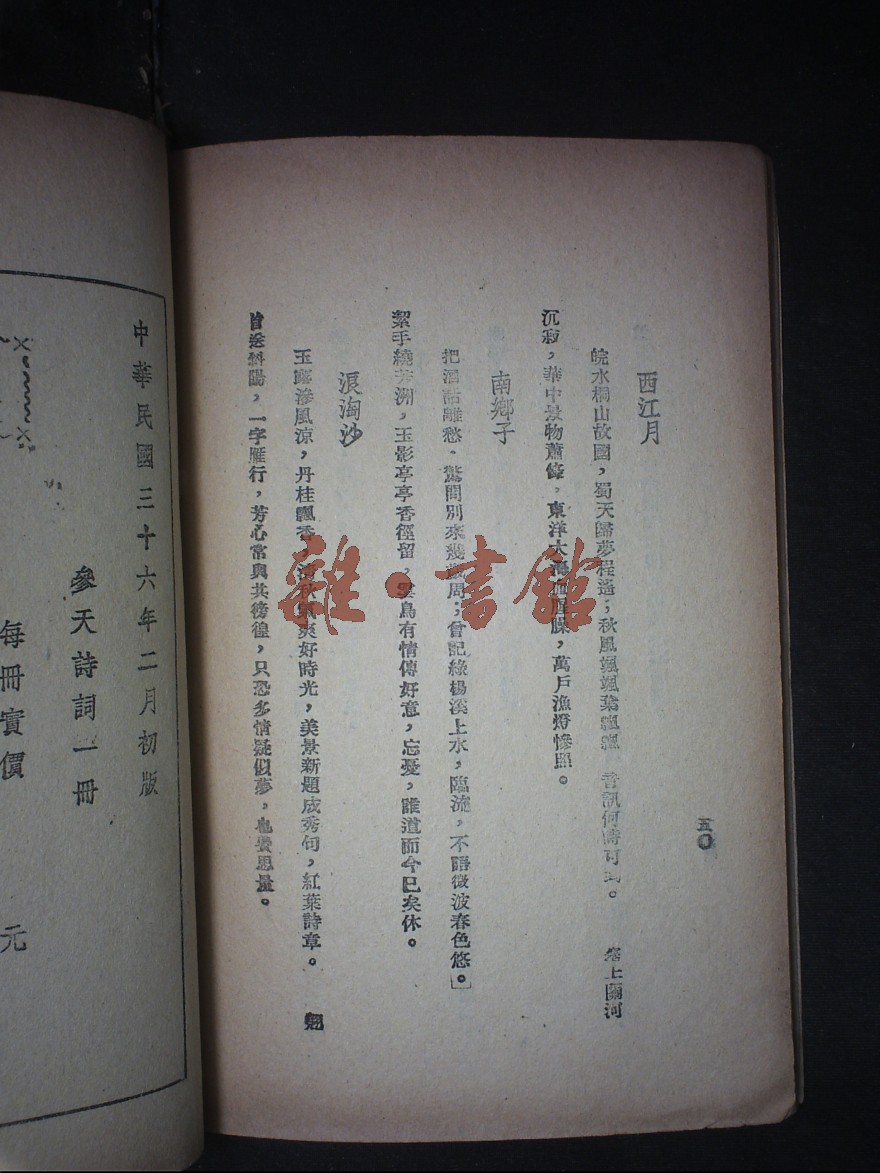 五〇
西江月
皖水桐山故國，蜀天歸夢程遙；秋風颯颯葉飄飄 音訊何時可到。 塞上關河
沉寂，華中景物蕭條，東洋大海血腥臊，萬戶漁燈慘照。
南鄉子
把酒話離愁。驚問別來幾歲周；曾記綠楊溪上水，臨流，不語微波春色悠。
絮手繞芳洲，玉影亭亭香徑留，雲鳥有情傳好意，忘憂，誰道而今已矣休。
浪淘沙
玉露滲風涼，丹桂飄香，清秋氣爽好時光，美景新題成秀句，紅葉詩章。 翹
首送斜陽，一字雁行，芳心常與共徬徨，只恐多情疑似夢，也費思量。
中華民國三十六年二月初版
參天詩詞一冊
每冊實價 元
雜·書館